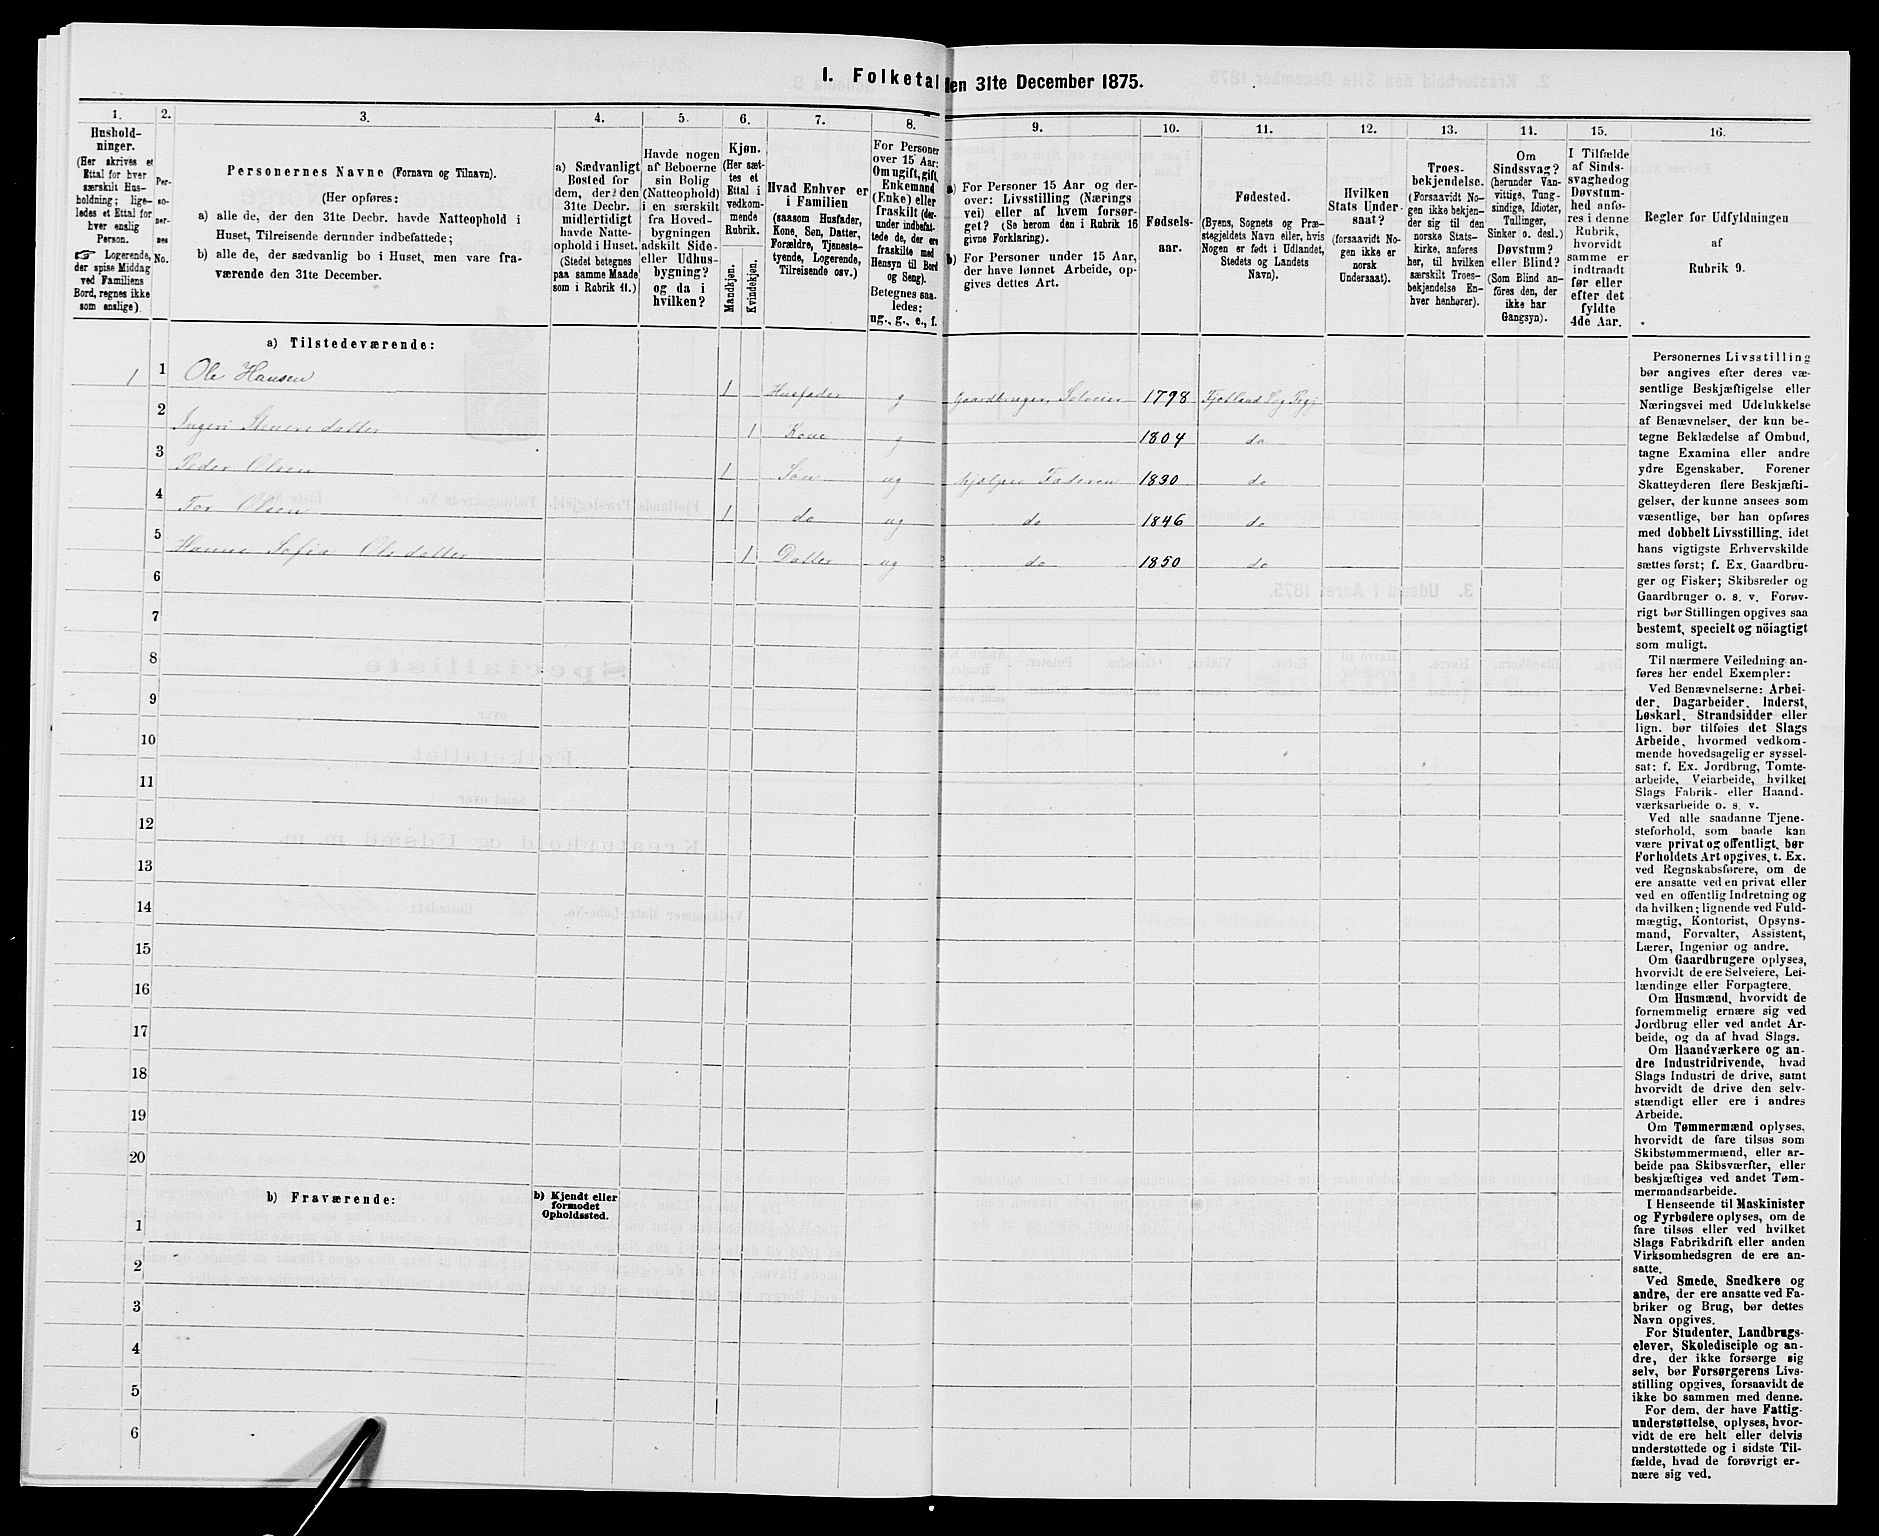 1. Folketal den 31te December 1875.
1.
Hushold-
ninger.
(Her skrives et
Ettal for hver
særskilt Hus-
holdning; lige-
ledes et Ettal for
hver enslig
Person.
☞ Logerende,
der spise Middag
ved Familiens
Bord, regnes ikke
som enslige).
2.
Per-
so-
ner-
nes
No.
3.
Personernes Navne (Fornavn og Tilnavn).
(Her opføres:
a) alle de, der den 31te Decbr. havde Natteophold i
Huset, Tilreisende derunder indbefattede;
b) alle de, der sædvanlig bo i Huset, men vare fra-
værende den 31te December.
4.
a) Sædvanligt
Bosted for
dem, der den
31te Decbr.
midlertidigt
havde Natte-
ophold i Huset.
(Stedet betegnes
paa samme Maade
som i Rubrik 11.)
5.
Havde nogen
af Beboerne
sin Bolig
(Natteophold)
i en særskilt
fra Hoved-
bygningen
adskilt Side-
eller Udhus-
bygning?
og da i
hvilken?
6.
Kjøn.
(Her sæt-
tes et
Ettal i
vedkom-
mende
Rubrik.
Mandkjøn.
Kvindekjøn.
7.
Hvad Enhver er
i Familien
(saasom Husfader,
Kone, Søn, Datter,
Forældre, Tjeneste-
tyende, Logerende,
Tilreisende osv.)
8.
For Personer
over 15 Aar:
Om ugift, gift,
Enkemand
(Enke) eller
fraskilt (der-
under indbefat-
tede de, der ere
fraskilte med
Hensyn til Bord
og Seng).
Betegnes saa-
ledes:
ug., g., e., f.
9.
a) For Personer 15 Aar og der-
over: Livsstilling (Nærings
vei) eller af hvem forsør-
get? (Se herom den i Rubrik 16
givne Forklaring).
b) For Personer under 15 Aar,
der have lønnet Arbeide, op-
gives dettes Art.
10.
Fødsels-
aar.
11.
Fødested.
(Byens, Sognets og Præ-
stegjeldets Navn eller, hvis
Nogen er født i Udlandet,
Stedets og Landets
Navn).
12.
Hvilken
Stats Under-
saat?
(forsaavidt No-
gen ikke er
norsk
Undersaat).
13.
Troes-
bekjendelse.
(Forsaavidt No-
gen ikke bekjen-
der sig til den
norske Stats-
kirke, anføres
her, til hvilken
særskilt Troes-
bekjendelse En-
hver henhører).
14.
Om
Sindssvag?
(herunder Van-
vittige, Tung-
sindige, Idioter,
Tullinger,
Sinker o. desl.)
Døvstum?
eller Blind?
(Som Blind an-
föres den, der
ikke har
Gangsyn).
15.
I Tilfælde
af Sinds-
svaghedog
Døvstum-
hed anfø-
res i denne
Rubrik,
hvorvidt
samme er
indtraadt
før eller
efter det
fyldte
4de Aar.
16.
Regler for Udfyldningen
af
Rubrik 9.
a) Tilstedeværende:
1 1 Ole Hansen 1 Husfader g Gaardbruger, Selveier 1798 Fjotland
2 Ingeri datter 1 Kone g 1804 do
3 Peder Olsen 1 Søn ug hjælper Faderen 1830 do
4 Tor Olsen 1 do ug do 1846 do
5 Hanne Sofia Olsdatter 1 Datter ug do 1850 do
6
7
8
9
10
11
12
13
14
15
16
17
18
19
20
b) Fraværende:
b) Kjendt eller
formodet
Opholdssted.
1
2
3
4
5
6
Personernes Livsstilling
bør angives efter deres væ-
sentlige Beskjæftigelse eller
Næringsvei med Udelukkelse
af Benævnelser, der kun be-
tegne Beklædelse af Ombud,
tagne Examina eller andre
ydre Egenskaber. Forener
Skatteyderen flere Beskjæfti-
gelser, der kunne ansees som
væsentlige, bør han opføres
med dobbelt Livsstilling, idet
hans vigtigste Erhvervskilde
sættes først; f. Ex. Gaardbru-
ger og Fisker; Skibsreder og
Gaardbruger o. s. v. Forøv-
rigt bør Stillingen opgives saa
bestemt, specielt og nöiagtigt
som muligt.
Til nærmere Veiledning an-
føres her endel Exempler:
Ved Benævnelserne: Arbei-
der, Dagarbeider, Inderst,
Løskarl, Strandsidder eller
lign. bør tilføies det Slags
Arbeide, hvormed vedkom-
mende hovedsagelig er syssel-
sat; f. Ex. Jordbrug, Tomte-
arbeide, Veiarbeide, hvilket
Slags Fabrik- eller Haand-
værksarbeide o. s. v.
Ved alle saadanne Tjene-
steforhold, som baade kan
være privat og offentligt, bør
Forholdets Art opgives, t. Ex.
ved Regnskabsførere, om de
ere ansatte ved en privat eller
ved en offentlig Indretning og
da hvilken; lignende ved Fuld-
mægtig, Kontorist, Opsyns-
mand, Forvalter, Assistent,
Lærer, Ingeniør og andre.
Om Gaardbrugere oplyses,
hvorvidt de ere Selveiere, Lei-
lændinge eller Forpagtere.
Om Husmænd, hvorvidt de
fornemmelig ernære sig ved
Jordbrug eller ved andet Ar-
beide, og da af hvad Slags.
Om Haandværkere og an-
dre Industridrivende, hvad
Slags Industri de drive, samt
hvorvidt de drive den selv-
stændigt eller ere i andres
Arbeide.
Om Tømmermænd oplyses,
hvorvidt de fare tilsøs som
Skibstømmermænd, eller ar-
beide paa Skibsværfter, eller
beskjæftiges ved andet Tøm-
mermandsarbeide.
I Henseende til Maskinister
og Fyrbødere oplyses, om de
fare tilsøs eller ved hvilket
Slags Fabrikdrift eller anden
Virksomhedsgren de ere an-
satte.
Ved Smede, Snedkere og
andre, der ere ansatte ved Fa-
briker og Brug, bør dettes
Navn opgives.
For Studenter, Landbrugs-
elever, Skoledisciple og an-
dre, der ikke forsørge sig
selv, bør Forsørgerens Livs-
stilling opgives, forsaavidt de
ikke bo sammen med denne.
For dem, der have Fattig-
understøttelse, oplyses, hvor-
vidt de ere helt eller delvis
understøttede og i sidste Til-
fælde, hvad de forøvrigt er-
nære sig ved.